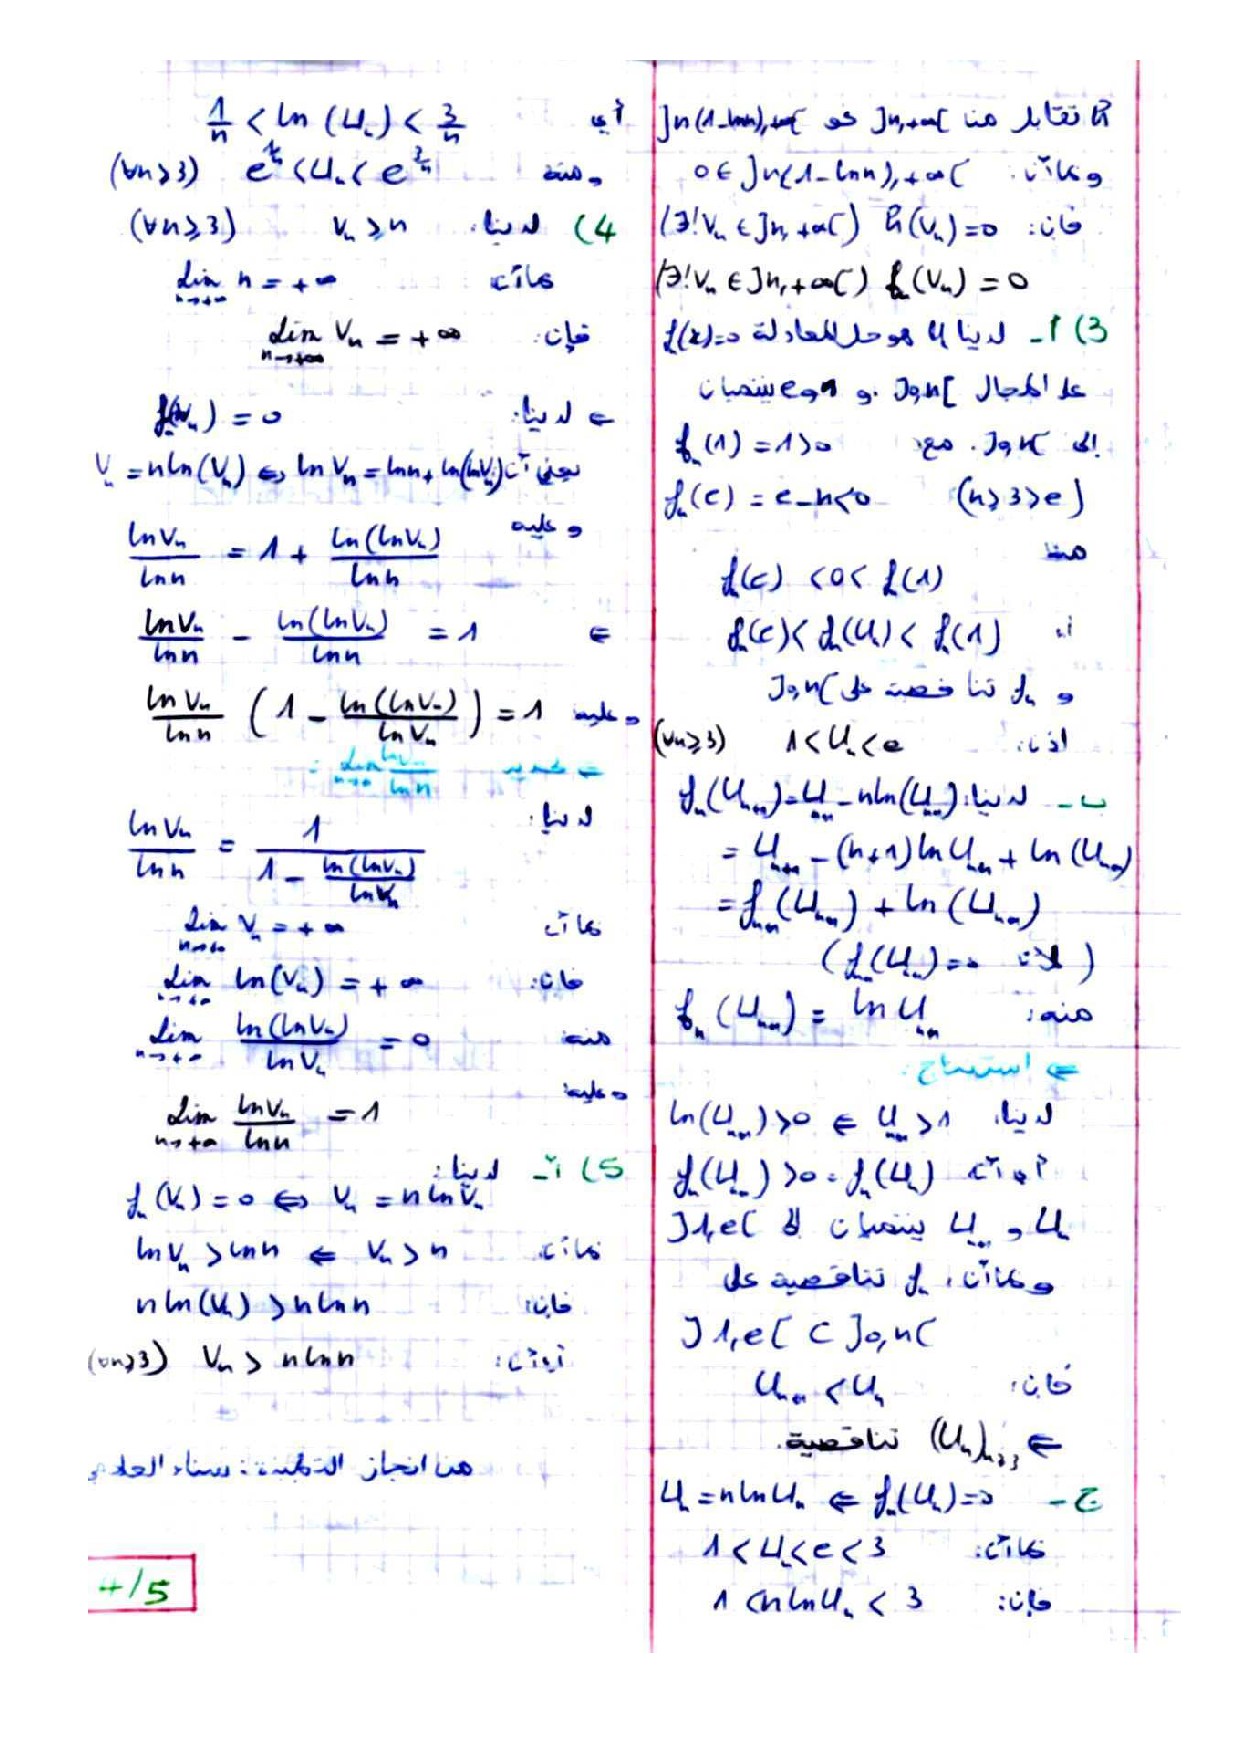 h تقابل من ]n,+∞[ نحو ]n(1-lnn),+∞[
وبما أن: 0∈]n(1-lnn),+∞[
فإن: (∃!Vₙ∈]n,+∞[) h(Vₙ)=0
(∃!Vₙ∈]n,+∞[) fₙ(Vₙ)=0
3) أ- لدينا Uₙ هو حل المعادلة f(x)=0
على المجال ]0,n[ . و 1 و e ينتميان
إلى ]0,n[. مع: fₙ(1)=1>0
fₙ(e)=e-n<0 (n≥3>e)
منه
fₙ(e)<0<fₙ(1)
أي fₙ(e)<fₙ(Uₙ)<fₙ(1)
و fₙ تناقصية على ]0,n[
إذن: 1<Uₙ<e (∀n≥3)
ب- لدينا: fₙ(Uₙ₊₁)=Uₙ₊₁-nln(Uₙ₊₁)
=Uₙ₊₁-(n+1)lnUₙ₊₁+ln(Uₙ₊₁)
=fₙ₊₁(Uₙ₊₁)+ln(Uₙ₊₁)
(لأن: fₙ₊₁(Uₙ₊₁)=0)
منه: fₙ(Uₙ₊₁)=lnUₙ₊₁
⇐ استنتاج:
لدينا: Uₙ₊₁>1 ⇒ ln(Uₙ₊₁)>0
أي أن fₙ(Uₙ₊₁)>0=fₙ(Uₙ)
Uₙ و Uₙ₊₁ ينتميان إلى ]1,e[
وبما أن: fₙ تناقصية على
]1,e[ ⊂ ]0,n[
فإن: Uₙ₊₁<Uₙ
⇐ (Uₙ)ₙ≥₃ تناقصية.
ج- fₙ(Uₙ)=0 ⇒ Uₙ=nlnUₙ
بما أن: 1<Uₙ<e<3
فإن: 1<nlnUₙ<3
أي 1/n<ln(Uₙ)<3/n
ومنه e^(1/n)<Uₙ<e^(3/n) (∀n≥3)
4) لدينا: Vₙ>n (∀n≥3)
بما أن lim n=+∞ n→+∞
فإن: lim Vₙ=+∞ n→+∞
⇐ لدينا: fₙ(Vₙ)=0
يعني أن Vₙ=nln(Vₙ) ⇔ lnVₙ=lnn+ln(lnVₙ)
وعليه lnVₙ/lnn=1+ln(lnVₙ)/lnn
⇐ lnVₙ/lnn-ln(lnVₙ)/lnn=1
وعليه lnVₙ/lnn(1-ln(lnVₙ)/lnVₙ)=1
⇐ تحديد lim lnVₙ/lnn n→+∞ :
لدينا: lnVₙ/lnn=1/(1-ln(lnVₙ)/lnVₙ)
بما أن lim Vₙ=+∞ n→+∞
فإن: lim ln(Vₙ)=+∞ n→+∞
منه lim ln(lnVₙ)/lnVₙ=0 n→+∞
وعليه: lim lnVₙ/lnn=1 n→+∞
5) أ- لدينا:
fₙ(Vₙ)=0 ⇔ Vₙ=nlnVₙ
بما أن: Vₙ>n ⇒ lnVₙ>lnn
فإن: nln(Vₙ)>nlnn
أي أن: Vₙ>nlnn (∀n≥3)
من انجاز التلميذة: سناء
4/5